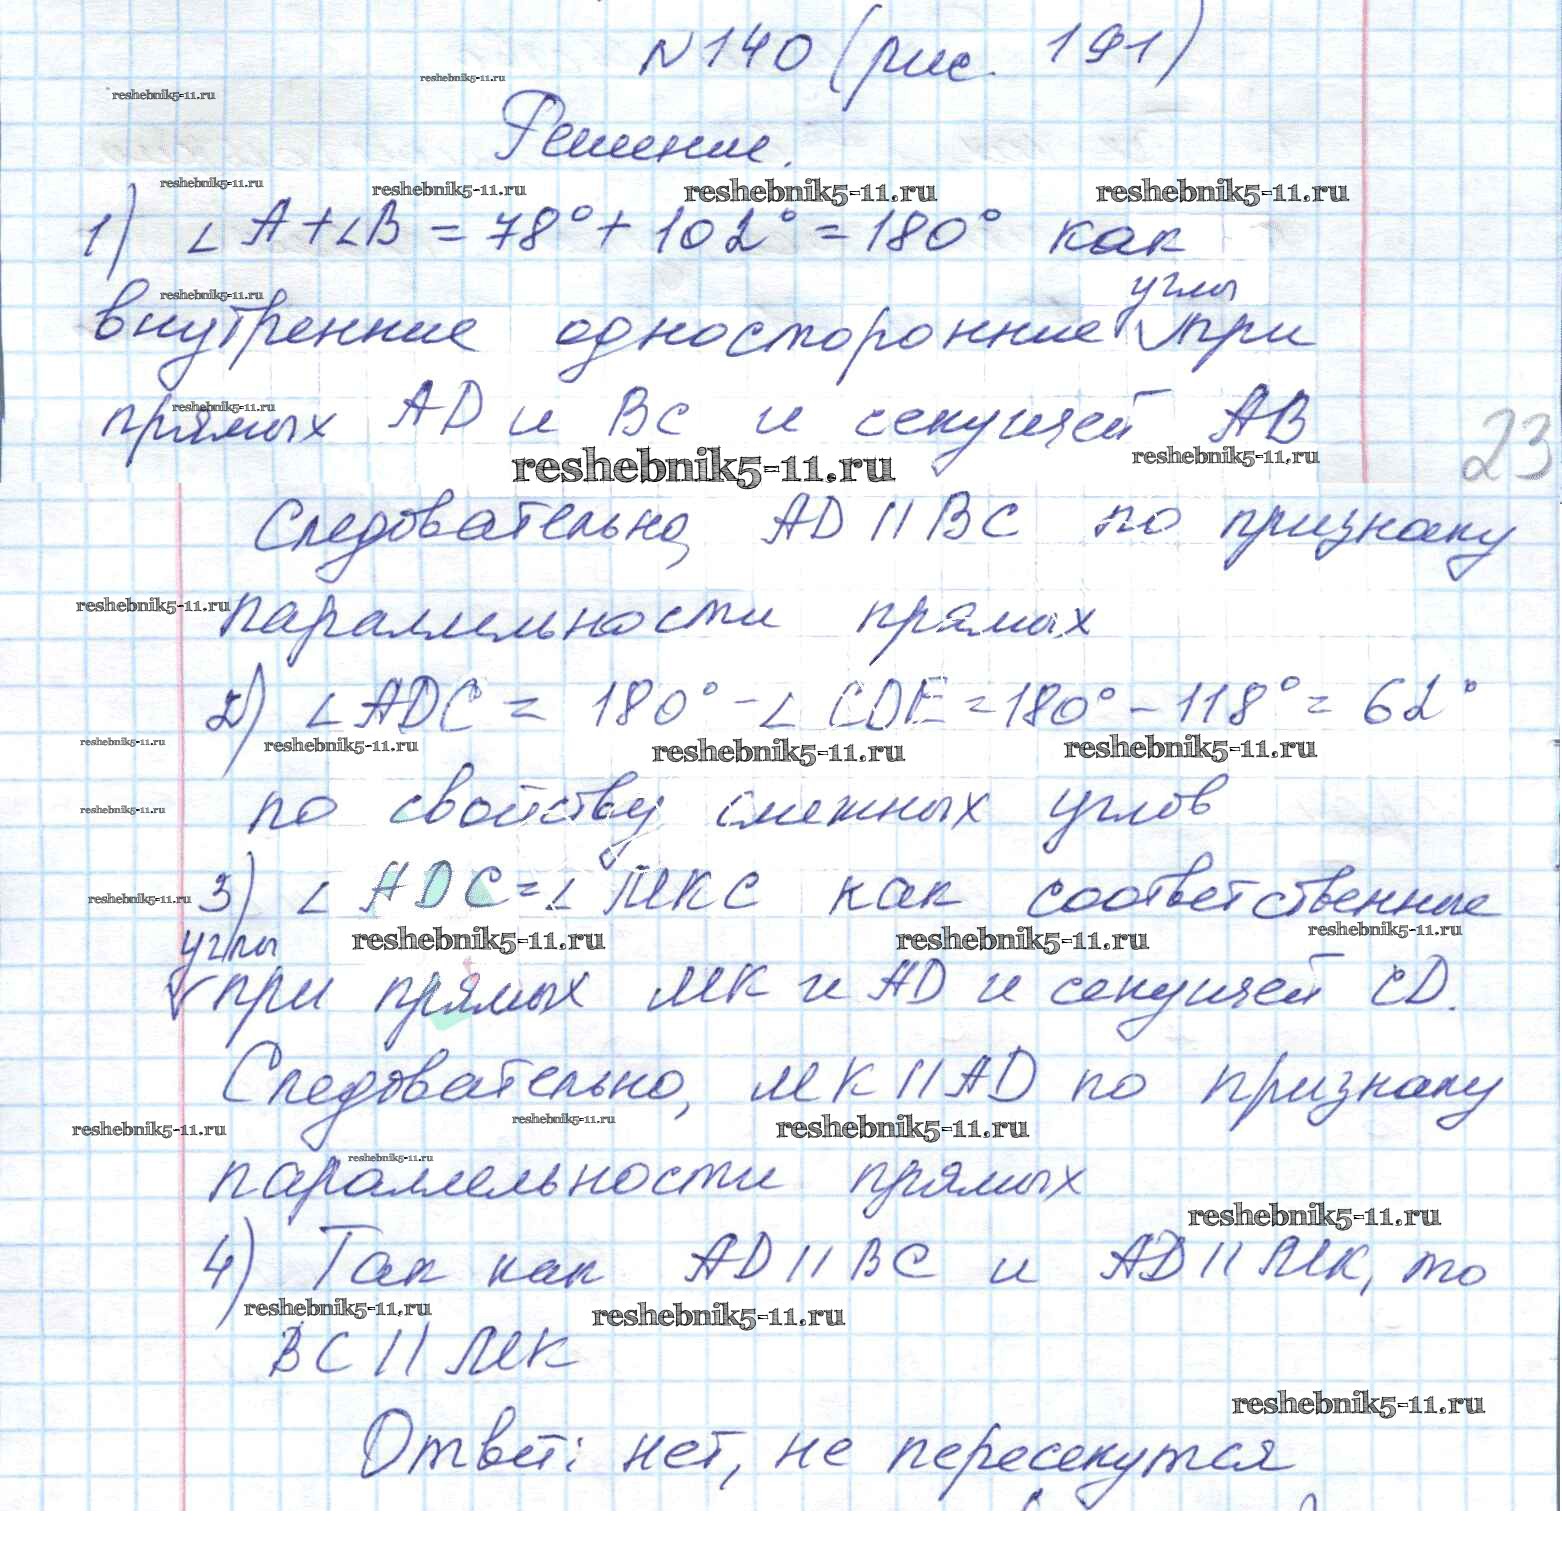 N140 (рис. 191)
Решение.
1) ∠A+∠B = 78°+102°=180° как
внутренние односторонние углы при
прямых AD и BC и секущей AB
23
Следовательно, AD||BC по признаку
параллельности прямых
2) ∠ADC = 180°-∠CDE=180°-118°=62°
по свойству смежных углов
3) ∠ADC=∠MKC как соответственные
углы
при прямых MK и AD и секущей CD.
Следовательно, MK||AD по признаку
параллельности прямых
4) Так как AD||BC и AD||MK, то
BC||MK
Ответ: нет, не пересекутся
reshebnik5-11.ru